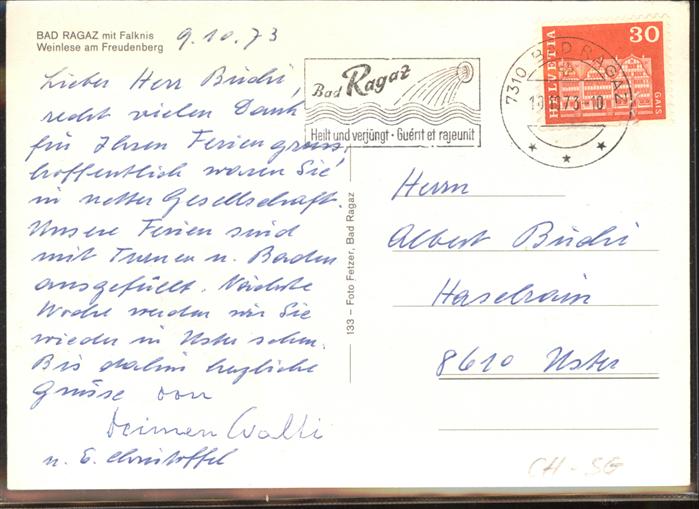 BAD RAGAZ mit Falknis
Weinlese am Freudenberg
9.10.73
Lieber Herr Büchi,
recht vielen Dank
für Ihren Feriengruss,
hoffentlich waren Sie
in netter Gesellschaft.
Unsere Ferien sind
mit Turnen u. Baden
ausgefüllt. Nächste
Woche werden wir Sie
wieder in Uster sehen.
Bis dahin herzliche
Grüsse von
Walti
u. E. Christoffel
133 – Foto Fetzer, Bad Ragaz
Bad Ragaz
Heilt und verjüngt - Guérit et rajeunit
7310 BAD RAGAZ
73-10
HELVETIA
30
GAIS
Herrn
Albert Büchi
Haselrain
8610 Uster
CH-SG